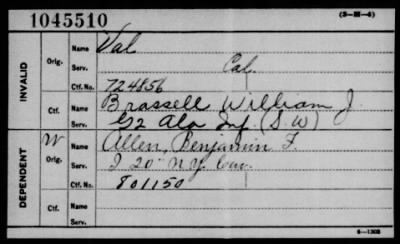 1045510
(3-M-4)
INVALID
Orig.
Name Val
Serv. Cal.
Ctf. No. 724856
Ctf.
Name Brassell William J.
Serv. G2 Ala Inf. (S W)
DEPENDENT
W
Orig.
Name Allen, Benjamin F.
Serv. I 20" N.Y. Cav.
Ctf. No. 801150
Ctf.
Name
Serv.